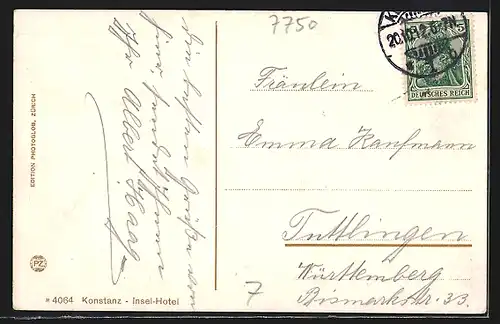 7750
Die besten Grüße von
hier, sendet Ihnen
Ihr Albert Haag
Fräulein
Emma Kaufmann
Tuttlingen
Württemberg
Bismarkstr. 33.
7
DEUTSCHES REICH
EDITION PHOTOGLOB, ZÜRICH
PZ
4064 Konstanz - Insel-Hotel